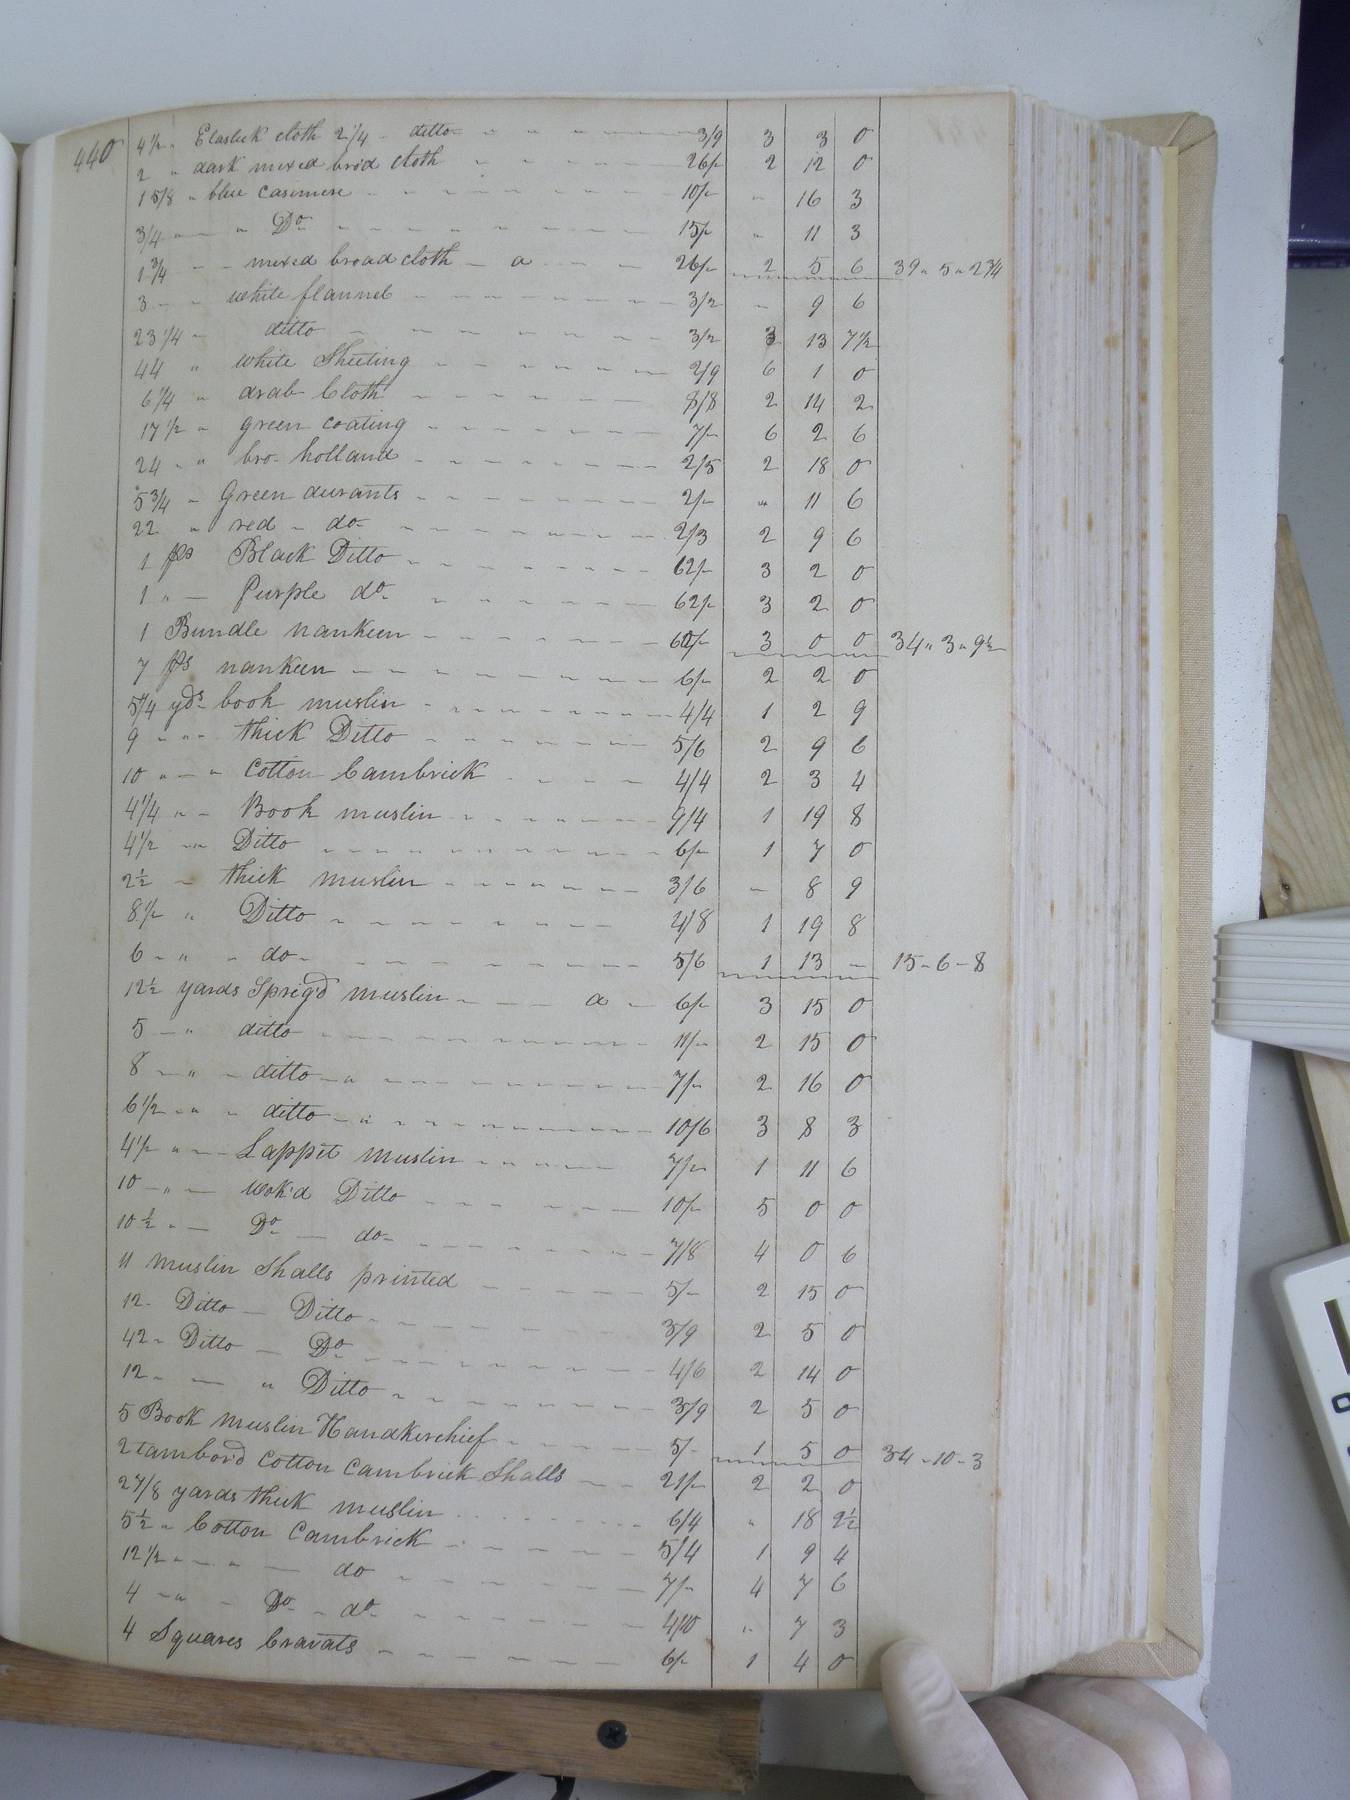 440
4 1/2 " Elastick cloth 2 1/4 - ditto 3/9 3 3 0
2 " dark mixed bro'd cloth 26/- 2 12 0
1 5/8 " blue Casimere 10/- " 16 3
3/4 " " Do 15/- " 11 3
1 3/4 - - mixed broad cloth - a 26/- 2 5 6 39 " 5 " 2 3/4
3 - - white flannel 3/2 - 9 6
23 1/4 - ditto 3/2 3 13 7 1/2
44 " white Sheeting 2/9 6 1 0
6 1/4 " drab Cloth 8/8 2 14 2
17 1/2 " green coating 7/- 6 2 6
24 " " bro- holland 2/5 2 18 0
5 3/4 " Green durants 2/- " 11 6
22 " red - do- 2/3 2 9 6
1 ps Black Ditto 62/- 3 2 0
1 " - Purple do 62/- 3 2 0
1 Bundle nankeen 60/- 3 0 0 34 " 3 " 9 1/2
7 ps nankeen 6/- 2 2 0
5 1/4 yds book muslin 4/4 1 2 9
9 - - - thick Ditto 5/6 2 9 6
10 " - " Cotton Cambrick 4/4 2 3 4
4 1/4 " - Book muslin 9/4 1 19 8
4 1/2 - Ditto 6/- 1 7 0
2 1/2 - thick muslin 3/6 - 8 9
8 1/2 " Ditto 4/8 1 19 8
6 - " - do- 5/6 1 13 - 15 - 6 - 8
12 1/2 yards Sprig'd muslin - a - 6/- 3 15 0
5 - " ditto 11/- 2 15 0
8 - " - ditto 7/- 2 16 0
6 1/2 - " - ditto 10/6 3 8 3
4 1/2 " - Lappet muslin 7/- 1 11 6
10 - " - wok'd Ditto 10/- 5 0 0
10 1/2 " - Do - do- 7/8 4 0 6
11 muslin Shalls printed 5/- 2 15 0
12 - Ditto - Ditto 3/9 2 5 0
42 - Ditto - Do 4/6 2 14 0
12 - - " Ditto 3/9 2 5 0
5 Book muslin Handkerchief 5/- 1 5 0 34 - 10 - 3
2 tambord Cotton Cambrick Shalls 21/- 2 2 0
2 7/8 yards thick muslin 6/4 " 18 2 1/2
5 1/2 " Cotton Cambrick 5/4 1 9 4
12 1/2 " - " - do 7/- 4 7 6
4 - " - Do - do 4/10 " 7 3
4 Squares Cravats 6/- 1 4 0